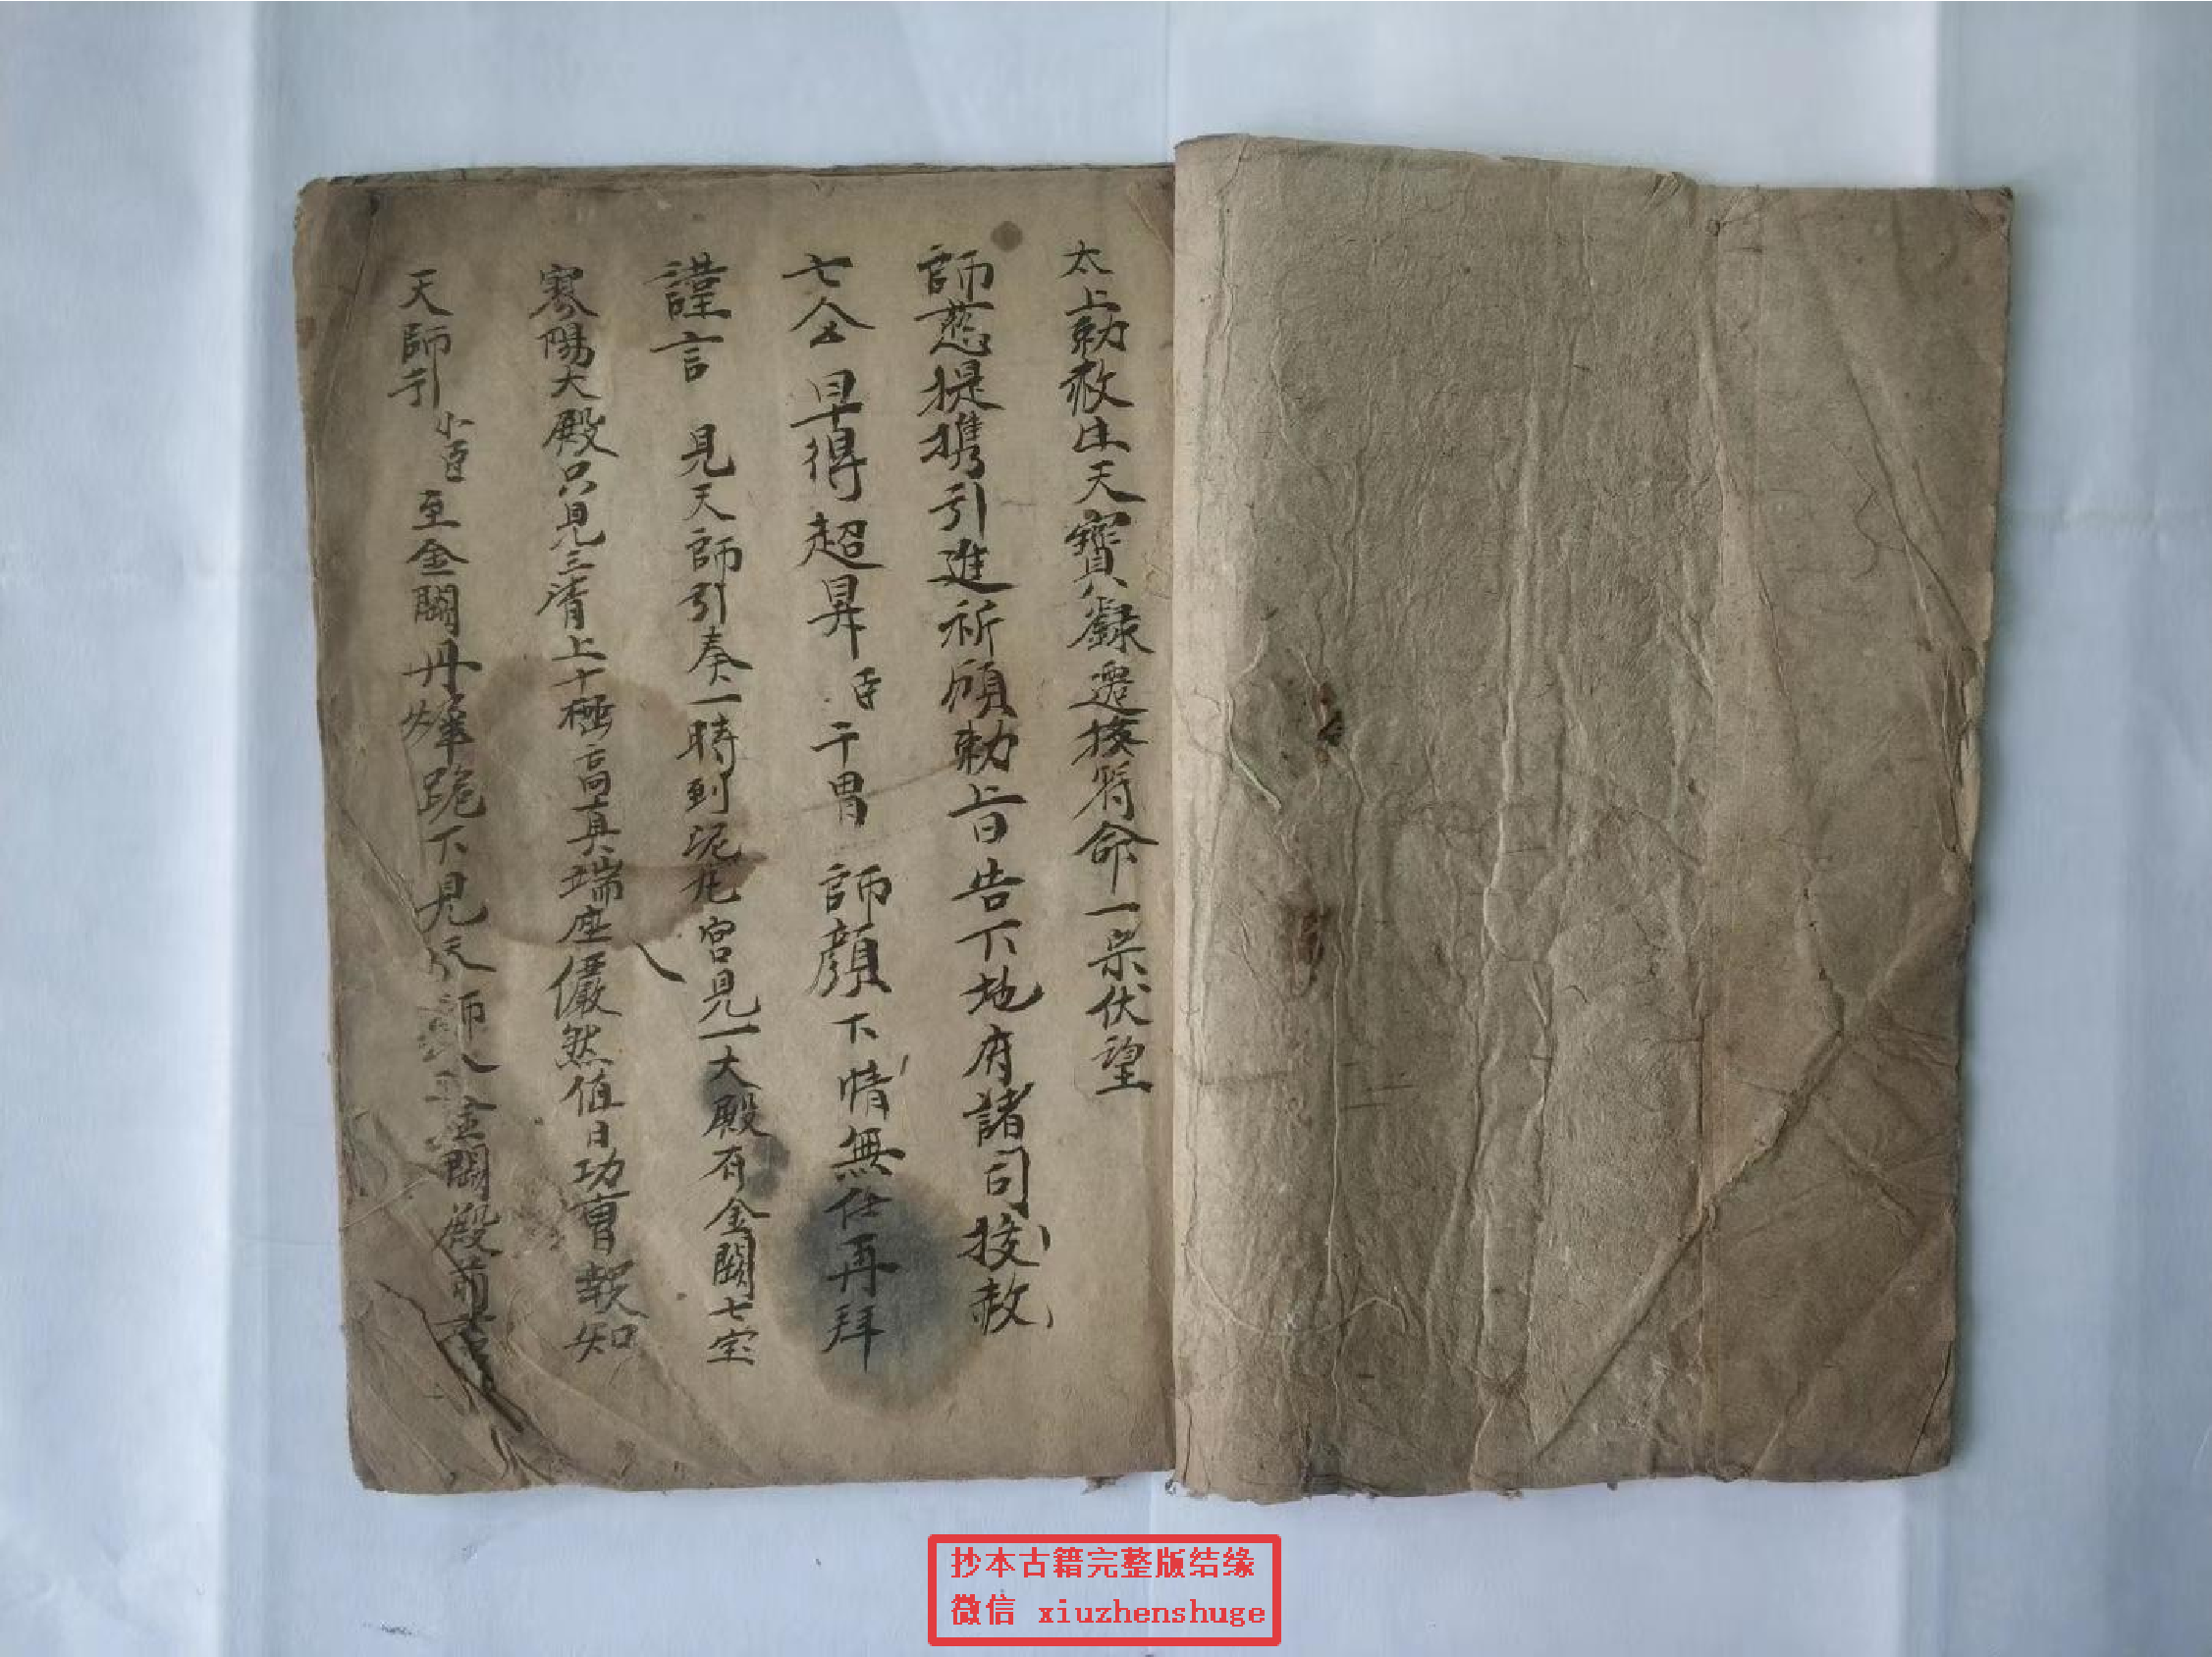 太上勅赦生天寶籙還拔符命一宗伏望
師慈提携引進祈頋勅旨告下地府諸司拔赦
七 早得超昇臣干冒 師顔下情無任再拜
謹言 見天師引奏一時到坭丸宮見一大殿有金闕七宝
寥陽大殿只見三清上十極高真端座儼然值日功曺報知
天師引小臣至金闕丹墀跪下見天師入金闕殿前
抄本古籍完整版结缘
微信 xiuzhenshuge